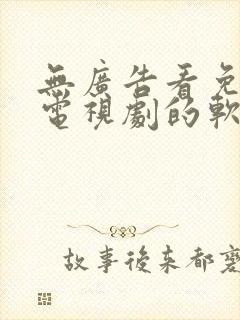 無廣告看免
電視劇的軟
故事後來都